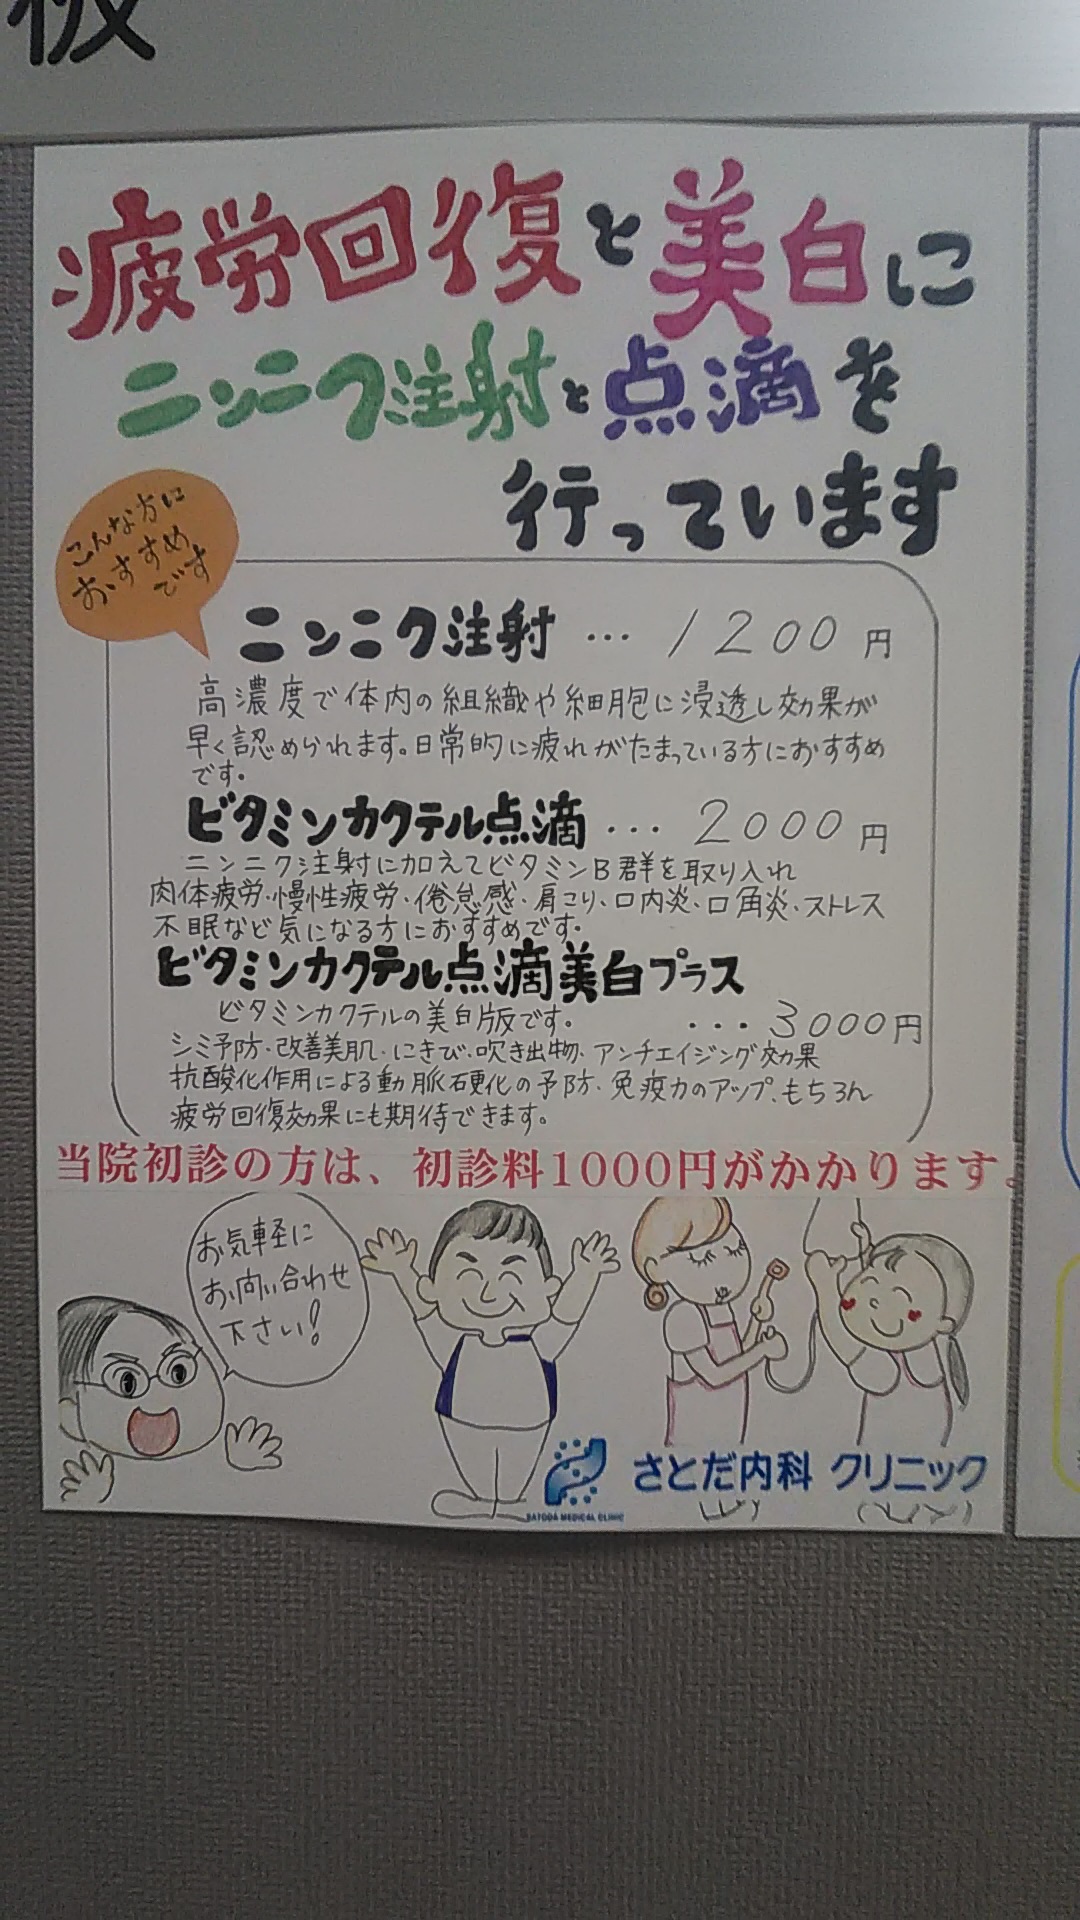 板
疲労回復と美白に
ニンニク注射と点滴を
行っています
こんな方に
おすすめ
です
ニンニク注射…1200円
高濃度で体内の組織や細胞に浸透し効果が
早く認められます。日常的に疲れがたまっている方におすすめ
です。
ビタミンカクテル点滴…2000円
ニンニク注射に加えてビタミンB群を取り入れ
肉体疲労・慢性疲労・倦怠感・肩こり・口内炎・口角炎・ストレス
不眠など気になる方におすすめです。
ビタミンカクテル点滴美白プラス
ビタミンカクテルの美白版です。…3000円
シミ予防・改善美肌・にきび・吹き出物・アンチエイジング効果
抗酸化作用による動脈硬化の予防・免疫力のアップ、もちろん
疲労回復効果にも期待できます。
当院初診の方は、初診料1000円がかかります。
お気軽に
お問い合わせ
下さい!
さとだ内科 クリニック
SATODA MEDICAL CLINIC